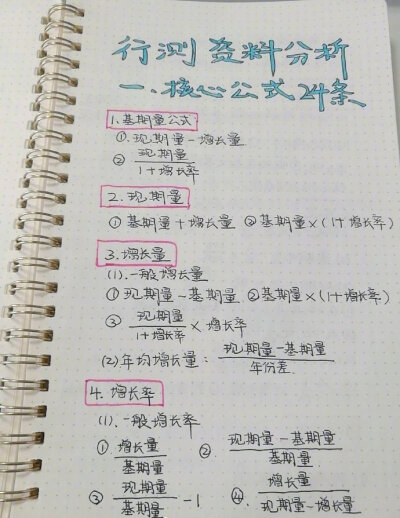 行测资料分析
一.核心公式24条
1.基期量公式
①.现期量-增长量
② 现期量/1+增长率
2.现期量
①基期量+增长量 ②基期量×(1+增长率)
3.增长量
(1).一般增长量
①现期量-基期量 ②基期量×(1+增长率)
③ 现期量/1+增长率 × 增长率
(2)年均增长量: 现期量-基期量/年份差
4.增长率
(1).一般增长率
① 增长量/基期量 ② 现期量-基期量/基期量
③ 现期量/基期量 -1 ④. 增长量/现期量-增长量